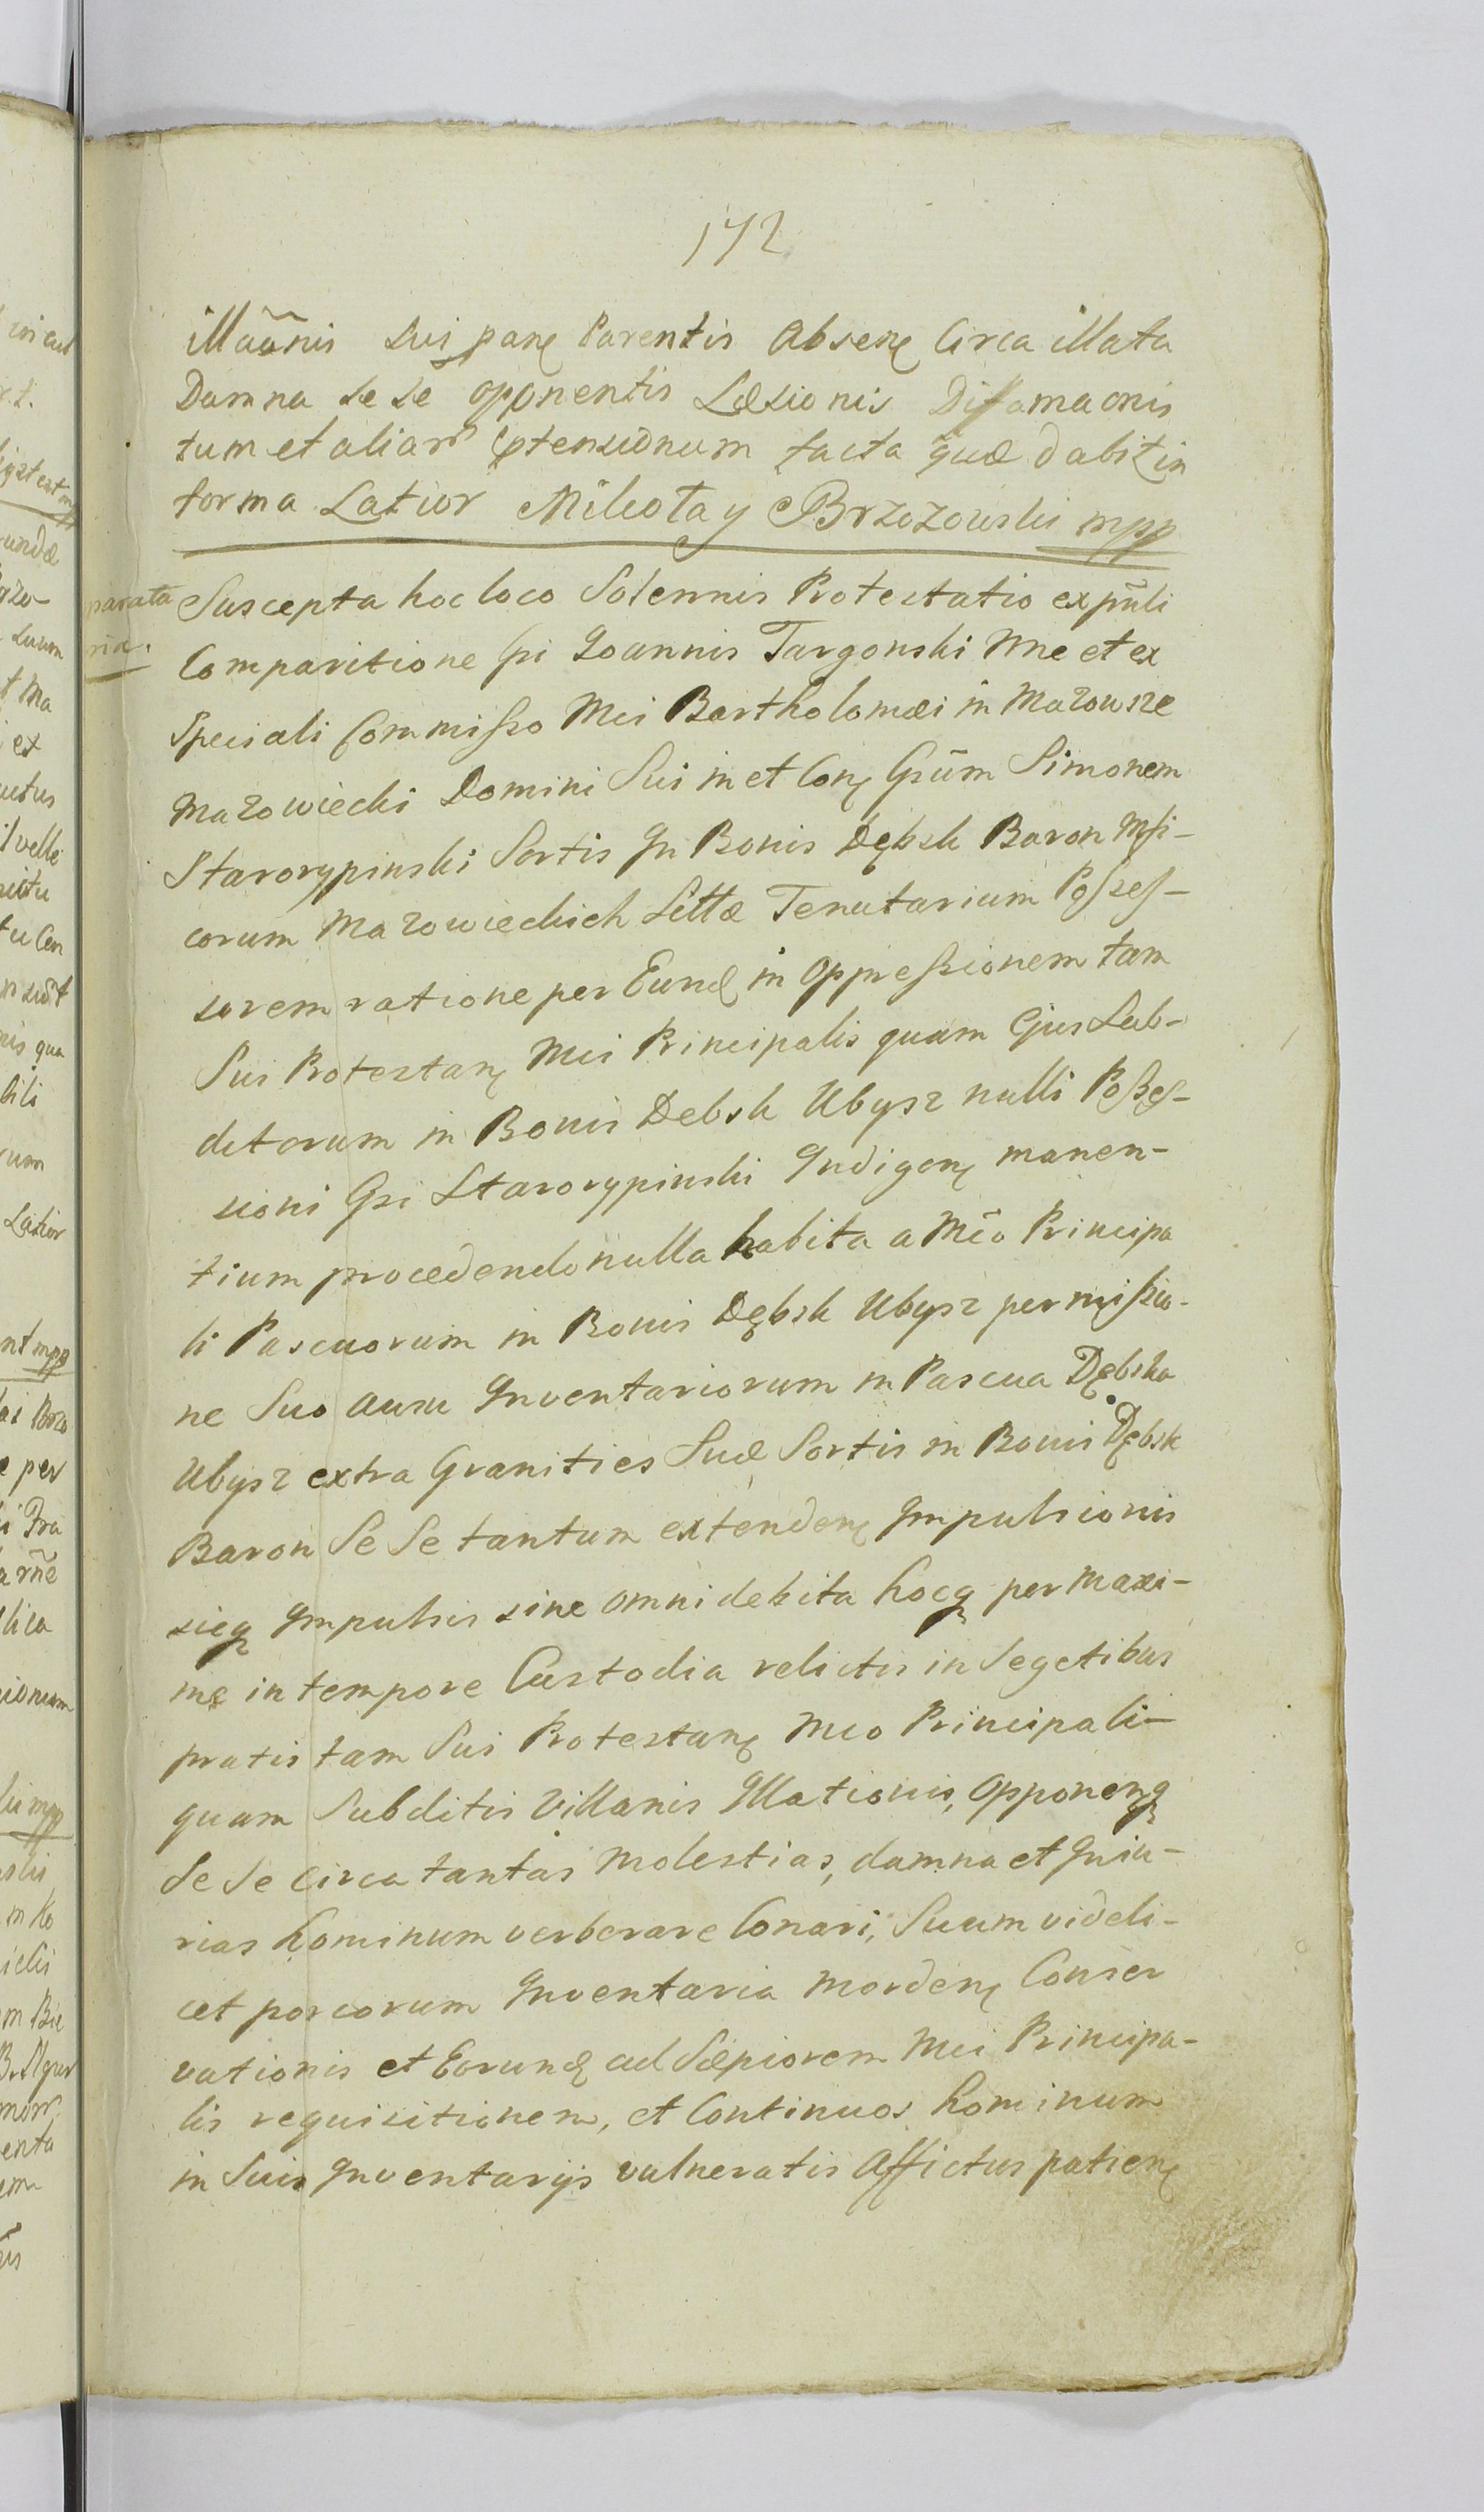 172
illãonis Sui panę Parentis Absenę Circa illata
Damna se se opponentis Læsionis Diffamaonis
tum et aliar̃ ptensionum facta quæ dabit in
forma Latior Mikołay Brzozowski mpp
parata
ria.
Suscepta hoc loco Solennis Protestatio ex pñli
Comparitione Gsi Joannis Targonski Mne et ex
Speciali Commisso Mci Bartholomæi in Mazowsze
Mazowiecki Domini Sui in et Conę Gsũm Simonem
Starorypinski Sortis In Bonis Dębsk Baron Msi-
corum Mazowieckich Sittæ Tenutarium Posses-
sorem ratione per Eundę in Oppressionem tam
Sui Protestanę Mci Principalis quam Ejus Sub-
ditorum in Bonis Debsk Ubysz nulli Posses-
sioni Gsi Starorypinski Indigenę manen-
tium procedendo nulla habita a Mco Principa
li Pascuorum in Bonis Dębsk Ubysz permissio-
ne Suo ausu Inventariorum in Pascua Dębska
Ubysz extra Granities Suæ Sortis in Bonis Dębsk
Baron Se Se tantum extendenę Impulsionis
sicq Impulsis sine omni debita hocq per maxi-
me in tempore Custodia relictis in Segetibus
pratis tam Sui Protestanę Mco Principali-
quam Subditis Villanis Illationis, Opponenq
Se Se circa tantas molestias, damna et Iniu-
rias hominum verberare Conari, Suum videli-
cet porcorum Inventaria mordenę Conser
vationis et Eorundę ad Sæpiorem Mci Principa-
lis requisitionem, et Continuos hominum
in Suis Inventarijs vulneratis Affictus patienę